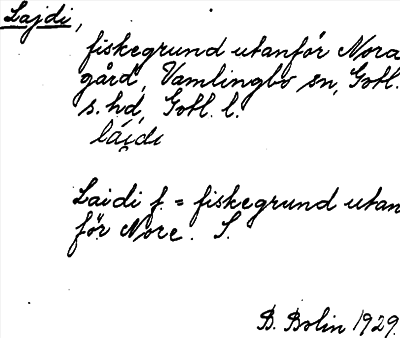 Lajdi,
fiskegrund utanför Nora
gård, Vamlingbo sn, Gotl.
s. hd, Gotl. l.
láịdi
Laidi f. = fiskegrund utan
för Nore. S.
B. Bolin 1929.